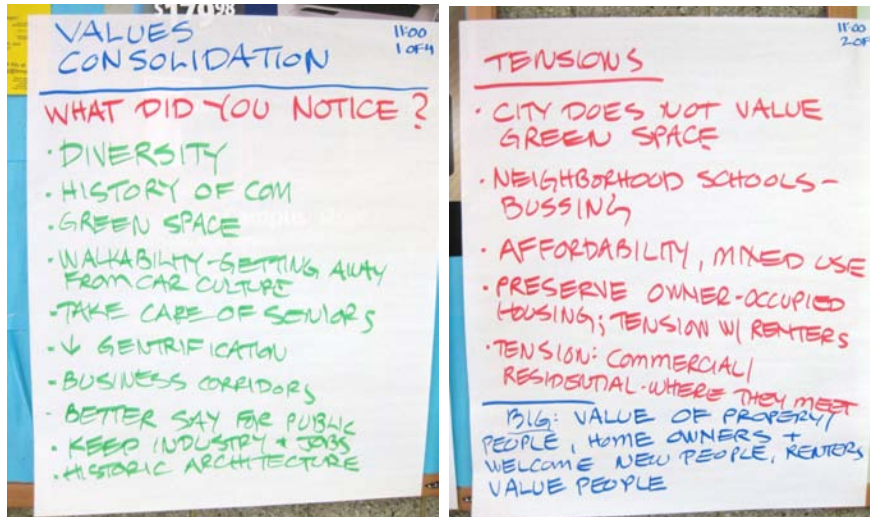 $179.98
VALUES
CONSOLIDATION
11:00
1 OF 4
WHAT DID YOU NOTICE?
· DIVERSITY
· HISTORY OF COM
· GREEN SPACE
· WALKABILITY-GETTING AWAY
FROM CAR CULTURE
· TAKE CARE OF SENIORS
· ↓ GENTRIFICATION
· BUSINESS CORRIDORS
· BETTER SAY FOR PUBLIC
· KEEP INDUSTRY + JOBS
· HISTORIC ARCHITECTURE
11:00
2 OF
TENSIONS
· CITY DOES NOT VALUE
GREEN SPACE
· NEIGHBORHOOD SCHOOLS-
BUSSING
· AFFORDABILITY, MIXED USE
· PRESERVE OWNER-OCCUPIED
HOUSING; TENSION W/ RENTERS
· TENSION: COMMERCIAL/
RESIDENTIAL-WHERE THEY MEET
BIG: VALUE OF PROPERTY/
PEOPLE, HOME OWNERS +
WELCOME NEW PEOPLE, RENTERS
VALUE PEOPLE